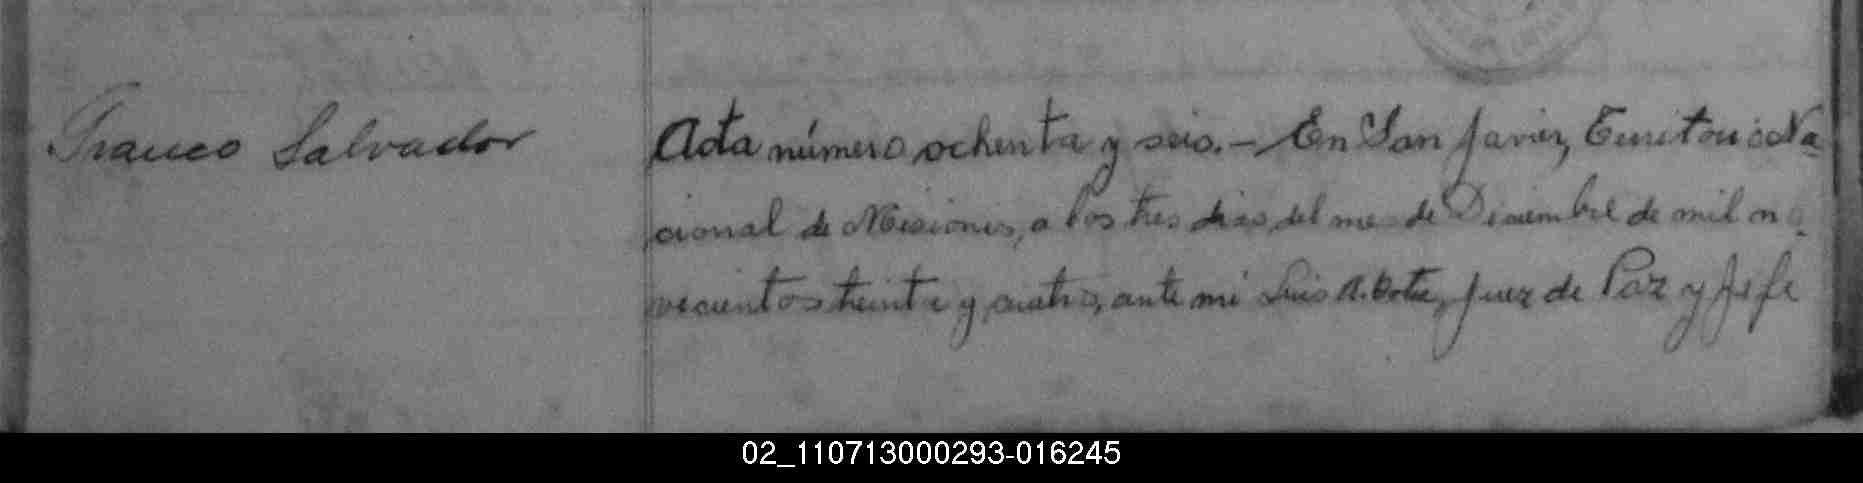 Franco Salvador
Acta número ochenta y seis.- En San Javier, Territorio Na-
cional de Misiones, a los tres dias del mes de Diciembre de mil no-
vecientos treinta y cuatro, ante mi Luis A. Juez de Paz y Jefe
02_110713000293-016245